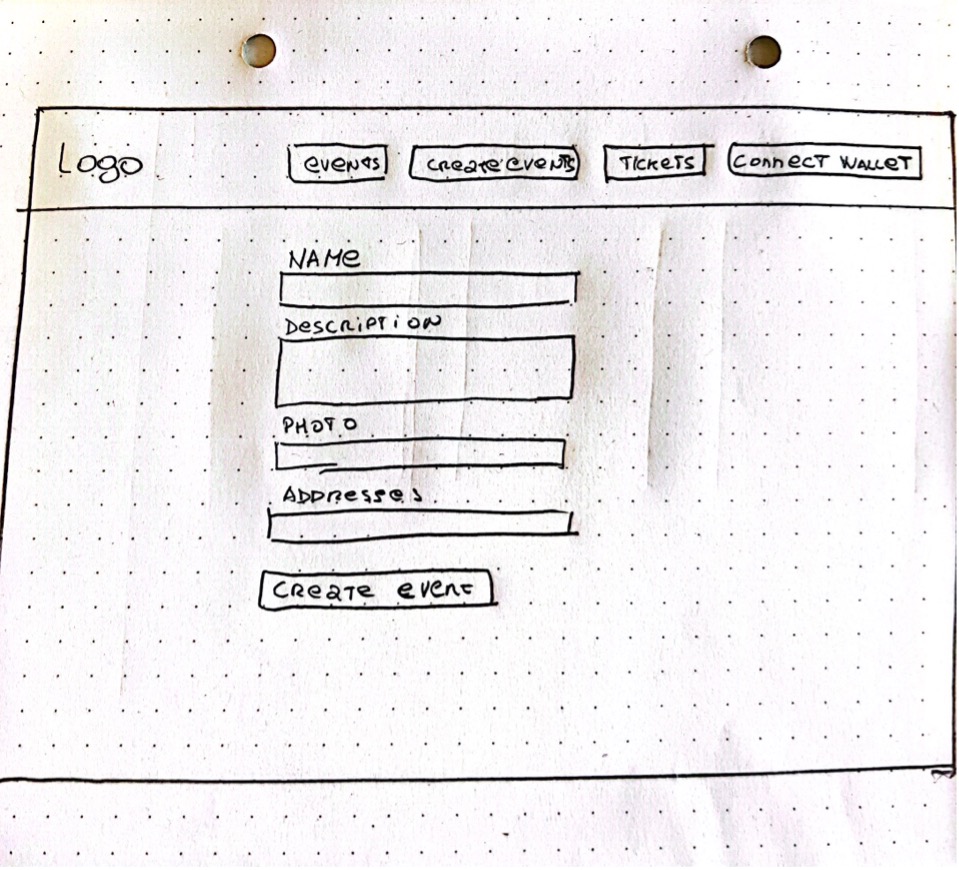 Logo
EVENTS
CREATE EVENTS
TICKETS
CONNECT WALLET
NAME
DESCRIPTION
PHOTO
ADDRESSES
CREATE EVENT